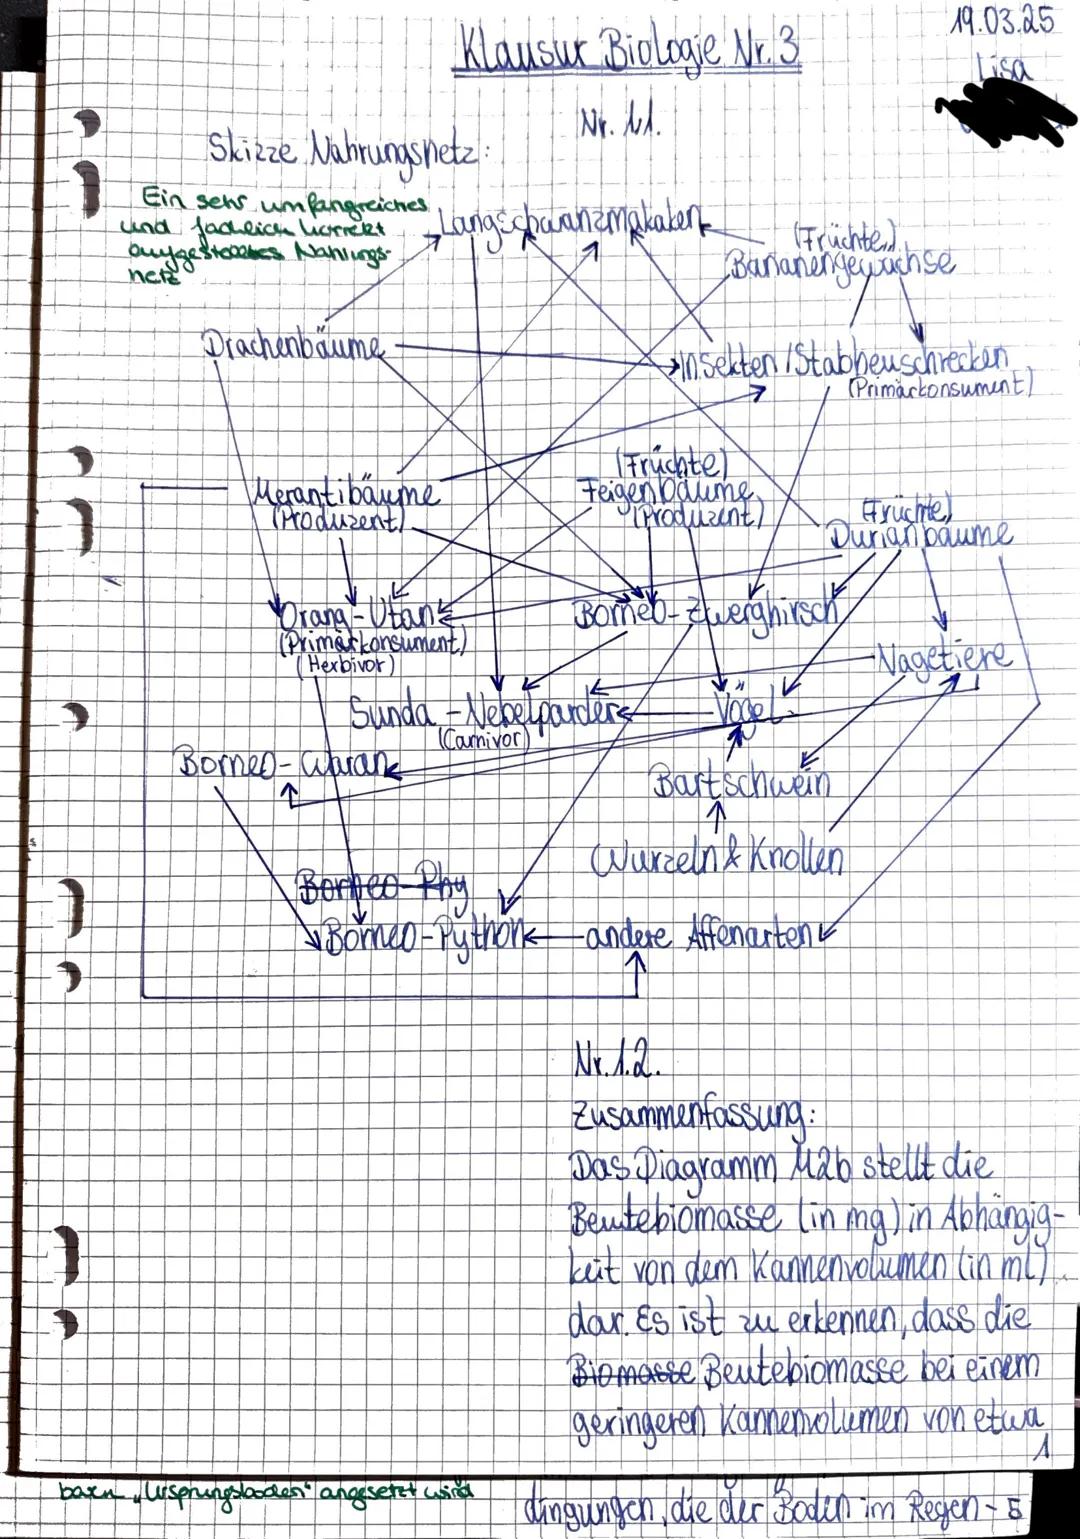 19.03.25
Klausur Biologie Nr. 3
Lisa
Nr. 1.1.
Skizze Nahrungsnetz:
Ein sehr umfangreiches
und fachlich korrekt
aufgestelltes Nahrungs-
netz
Langschwanzmakaken
(Früchte)
Bananengewächse
Drachenbäume
Insekten / Stabheuschrecken
(Primärkonsument)
(Früchte)
Merantibäume
Feigenbäume
(Produzent)
(Produzent)
(Früchte)
Durianbäume
Orang-Utan
Borneo-Zwerghirsch
(Primärkonsument)
(Herbivor)
Nagetiere
Sunda-Nebelparder
Vögel
(Carnivor)
Borneo-Waran
Bartschwein
Wurzeln & Knollen
Borneo-Phy
Borneo-Python
andere Affenarten
Nr. 1.2.
Zusammenfassung:
Das Diagramm M2b stellt die
Beutebiomasse (in mg) in Abhängig-
keit von dem Kannenvolumen (in ml)
dar. Es ist zu erkennen, dass die
Biomasse Beutebiomasse bei einem
geringeren Kannenvolumen von etwa
1
"Ursprungsboden" angesetzt wird
dingungen, die der Boden im Regen-